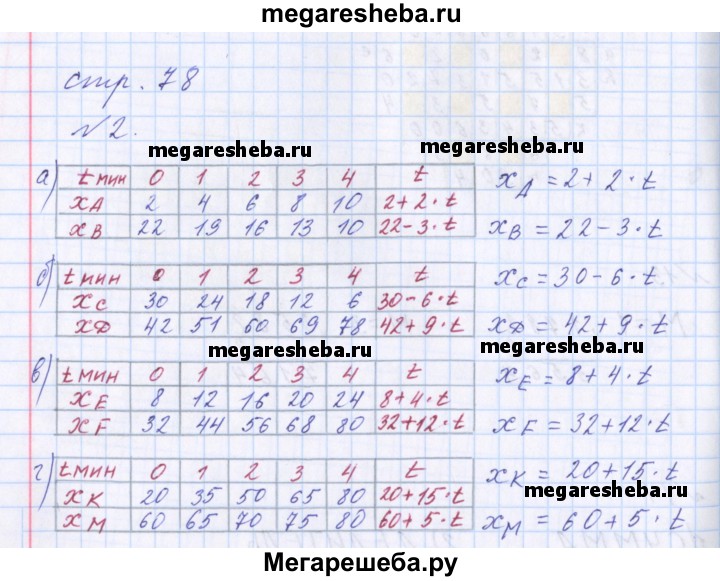 megaresheba.ru
стр. 78
№ 2.
megaresheba.ru
megaresheba.ru
а) t мин 0 1 2 3 4 t
xА 2 4 6 8 10 2+2·t
xВ 22 19 16 13 10 22-3·t
xД = 2 + 2 · t
xВ = 22 - 3 · t
б) t мин 0 1 2 3 4 t
xС 30 24 18 12 6 30-6·t
xД 42 51 60 69 78 42+9·t
xС = 30 - 6 · t
xД = 42 + 9 · t
megaresheba.ru
megaresheba.ru
в) t мин 0 1 2 3 4 t
xE 8 12 16 20 24 8+4·t
xF 32 44 56 68 80 32+12·t
xE = 8 + 4 · t
xF = 32 + 12 · t
г) t мин 0 1 2 3 4 t
xК 20 35 50 65 80 20+15·t
xМ 60 65 70 75 80 60+5·t
xК = 20 + 15 · t
megaresheba.ru
xМ = 60 + 5 · t
Мегарешеба.ру